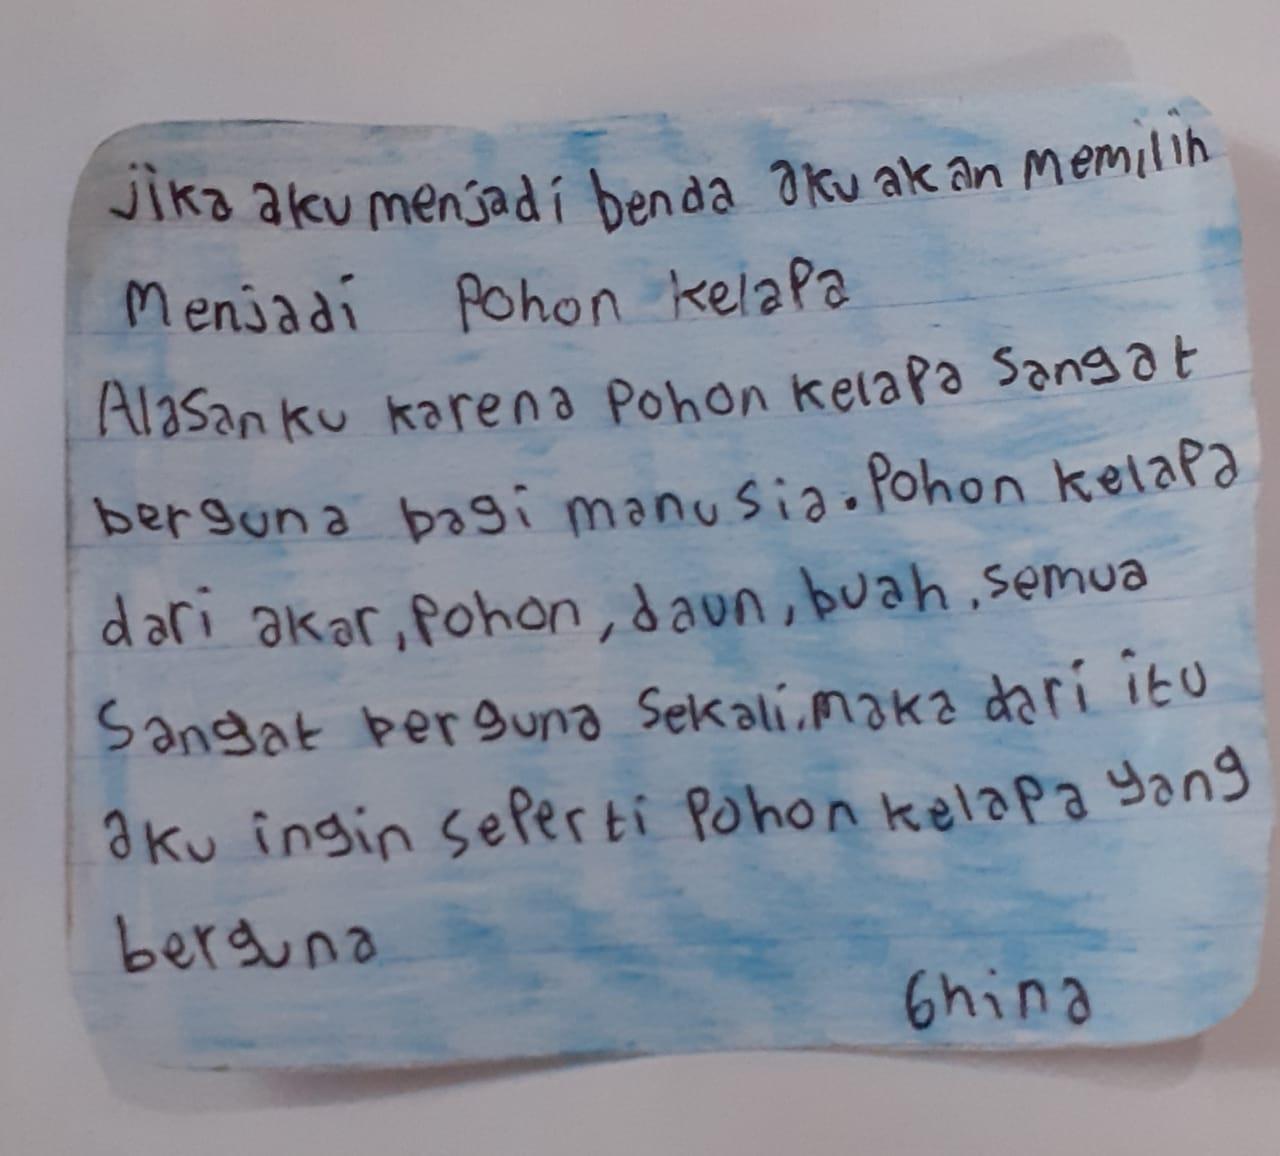 jika aku menjadi benda aku akan memilih
Menjadi Pohon kelapa
Alasanku karena Pohon kelapa sangat
berguna bagi manusia. Pohon kelapa
dari akar, Pohon, daun, buah, semua
Sangat berguna sekali. maka dari itu
aku ingin seperti Pohon kelapa yang
berguna
Ghina